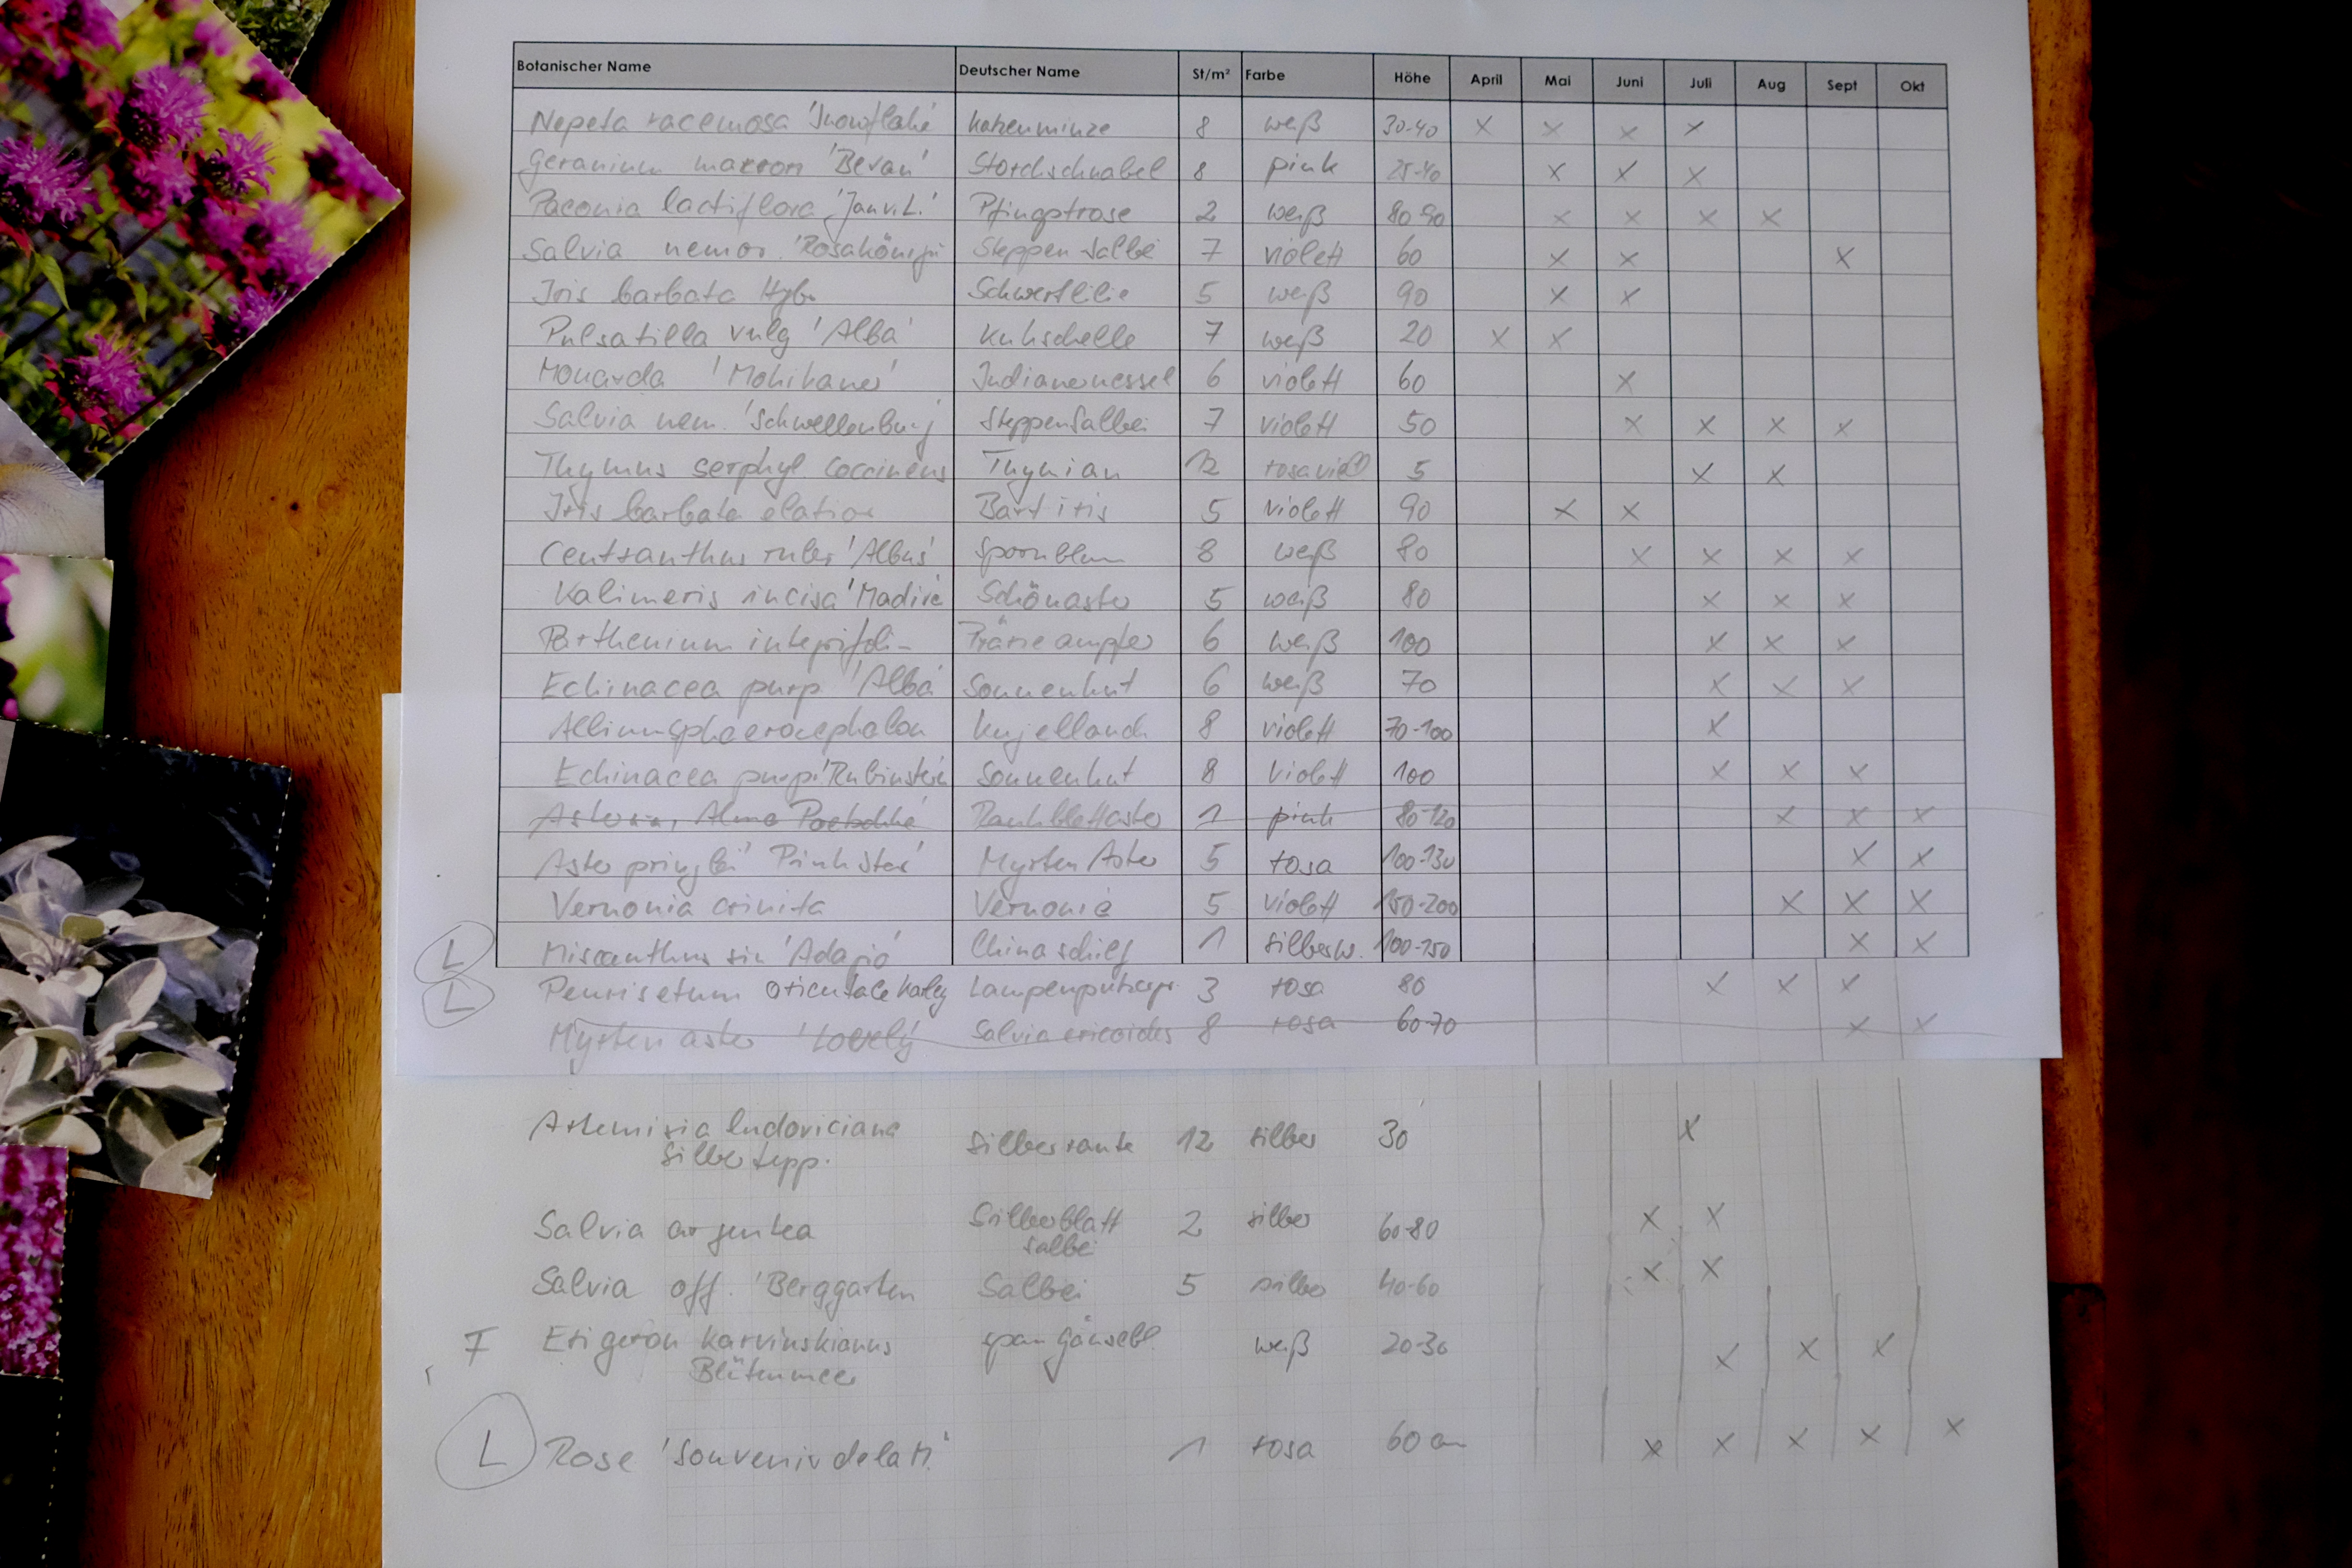 Botanischer Name Deutscher Name St/m² Farbe Höhe April Mai Juni Juli Aug Sept Okt
Nepeta racemosa 'Snowflake' Katzenminze 8 weiß 30-40 x x x x
Geranium macror 'Bevan' Storchschnabel 8 pink 25-40 x x x
Paeonia lactiflora 'Jan v. L.' Pfingstrose 2 weiß 80-90 x x x x
Salvia nemor. 'Rosakönigin Steppen Salbei 7 violett 60 x x x
Iris barbata Hyb. Schwertlilie 5 weiß 90 x x
Pulsatilla vulg 'Alba' Kuhschelle 7 weiß 20 x x
Monarda 'Mohikaner' Indianernessel 6 violett 60 x
Salvia nem. 'Schwellenburg' SteppenSalbei 7 violett 50 x x x x
Thymus serphyl. Coccineus Thymian 12 5 x x
Iris barbata elatior Bart iris 5 violett 90 x x
Centranthus ruber 'Albus' Spornblum 8 weiß 80 x x x x
Kalimeris incisa 'Madiva Schönaster 5 weiß 80 x x x
Parthenium integrifoli- Prärieampfer 6 weiß 100 x x x
Echinacea purp 'Alba' Sonnenhut 6 weiß 70 x x x
Allium sphaerocephalon Kugellauch 8 violett 70-100 x
Echinacea purp 'Rubinstern Sonnenhut 8 violett 100 x x x
Alma Poetschke' Rauhblattaster 1 pink 80-120 x x x
Aster pringlei 'Pink Star' Myrten Aster 5 rosa 100-130 x x
Vernonia crinita Vernonie 5 violett 150-200 x x x
L Miscanthus sin 'Adagio' Chinaschilf 1 silberw. 100-150 x x
L Pennisetum orientale Karley Lampenputzergr. 3 rosa 80 x x x
Myrten aster 'Lovely' Salvia ericoides 8 rosa 60-70 x x
Artemisia ludoviciana Silberraute 12 silber 30 x
Silbertepp.
Salvia argentea Silberblatt 2 silber 60-80 x x
salbei
Salvia off. 'Berggarten Salbei 5 silber 40-60 x x
F Erigeron Karvinskianus span Gänsebl. weiß 20-30 x x x
Blütenmeer
L Rose 'Souvenir de la M.' 1 rosa 60 cm x x x x x